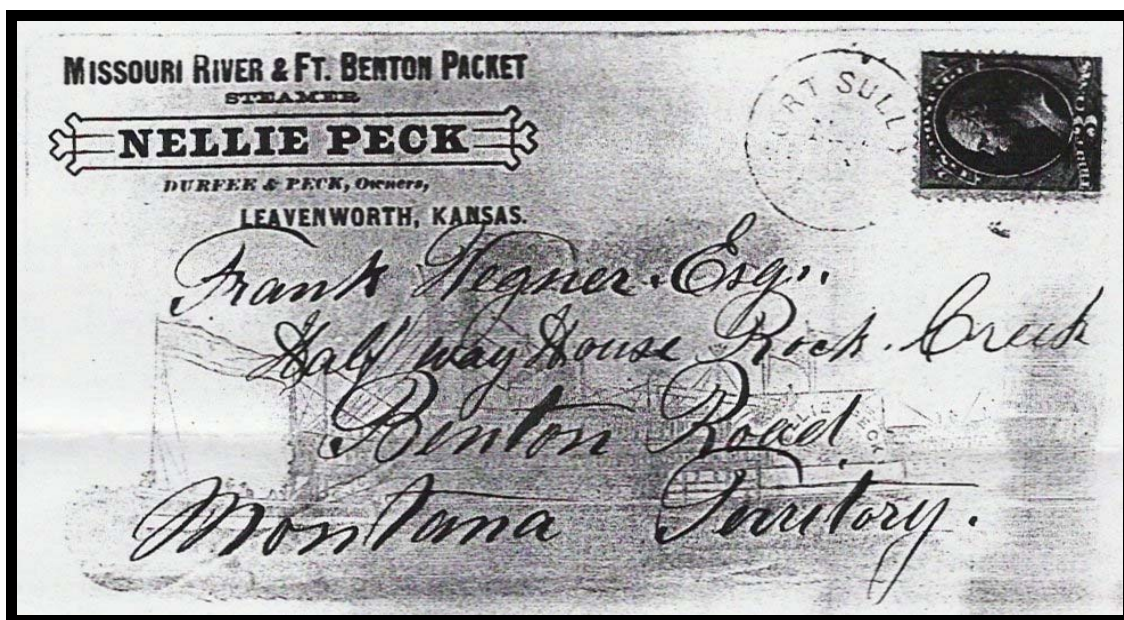 MISSOURI RIVER & FT. BENTON PACKET
STEAMER
NELLIE PECK
DURFEE & PECK, Owners,
LEAVENWORTH, KANSAS.
FORT SULLY
Frank Wegner. Esq..
Half way House Rock. Creek
Benton Road.
Montana Territory.
NELLIE PECK